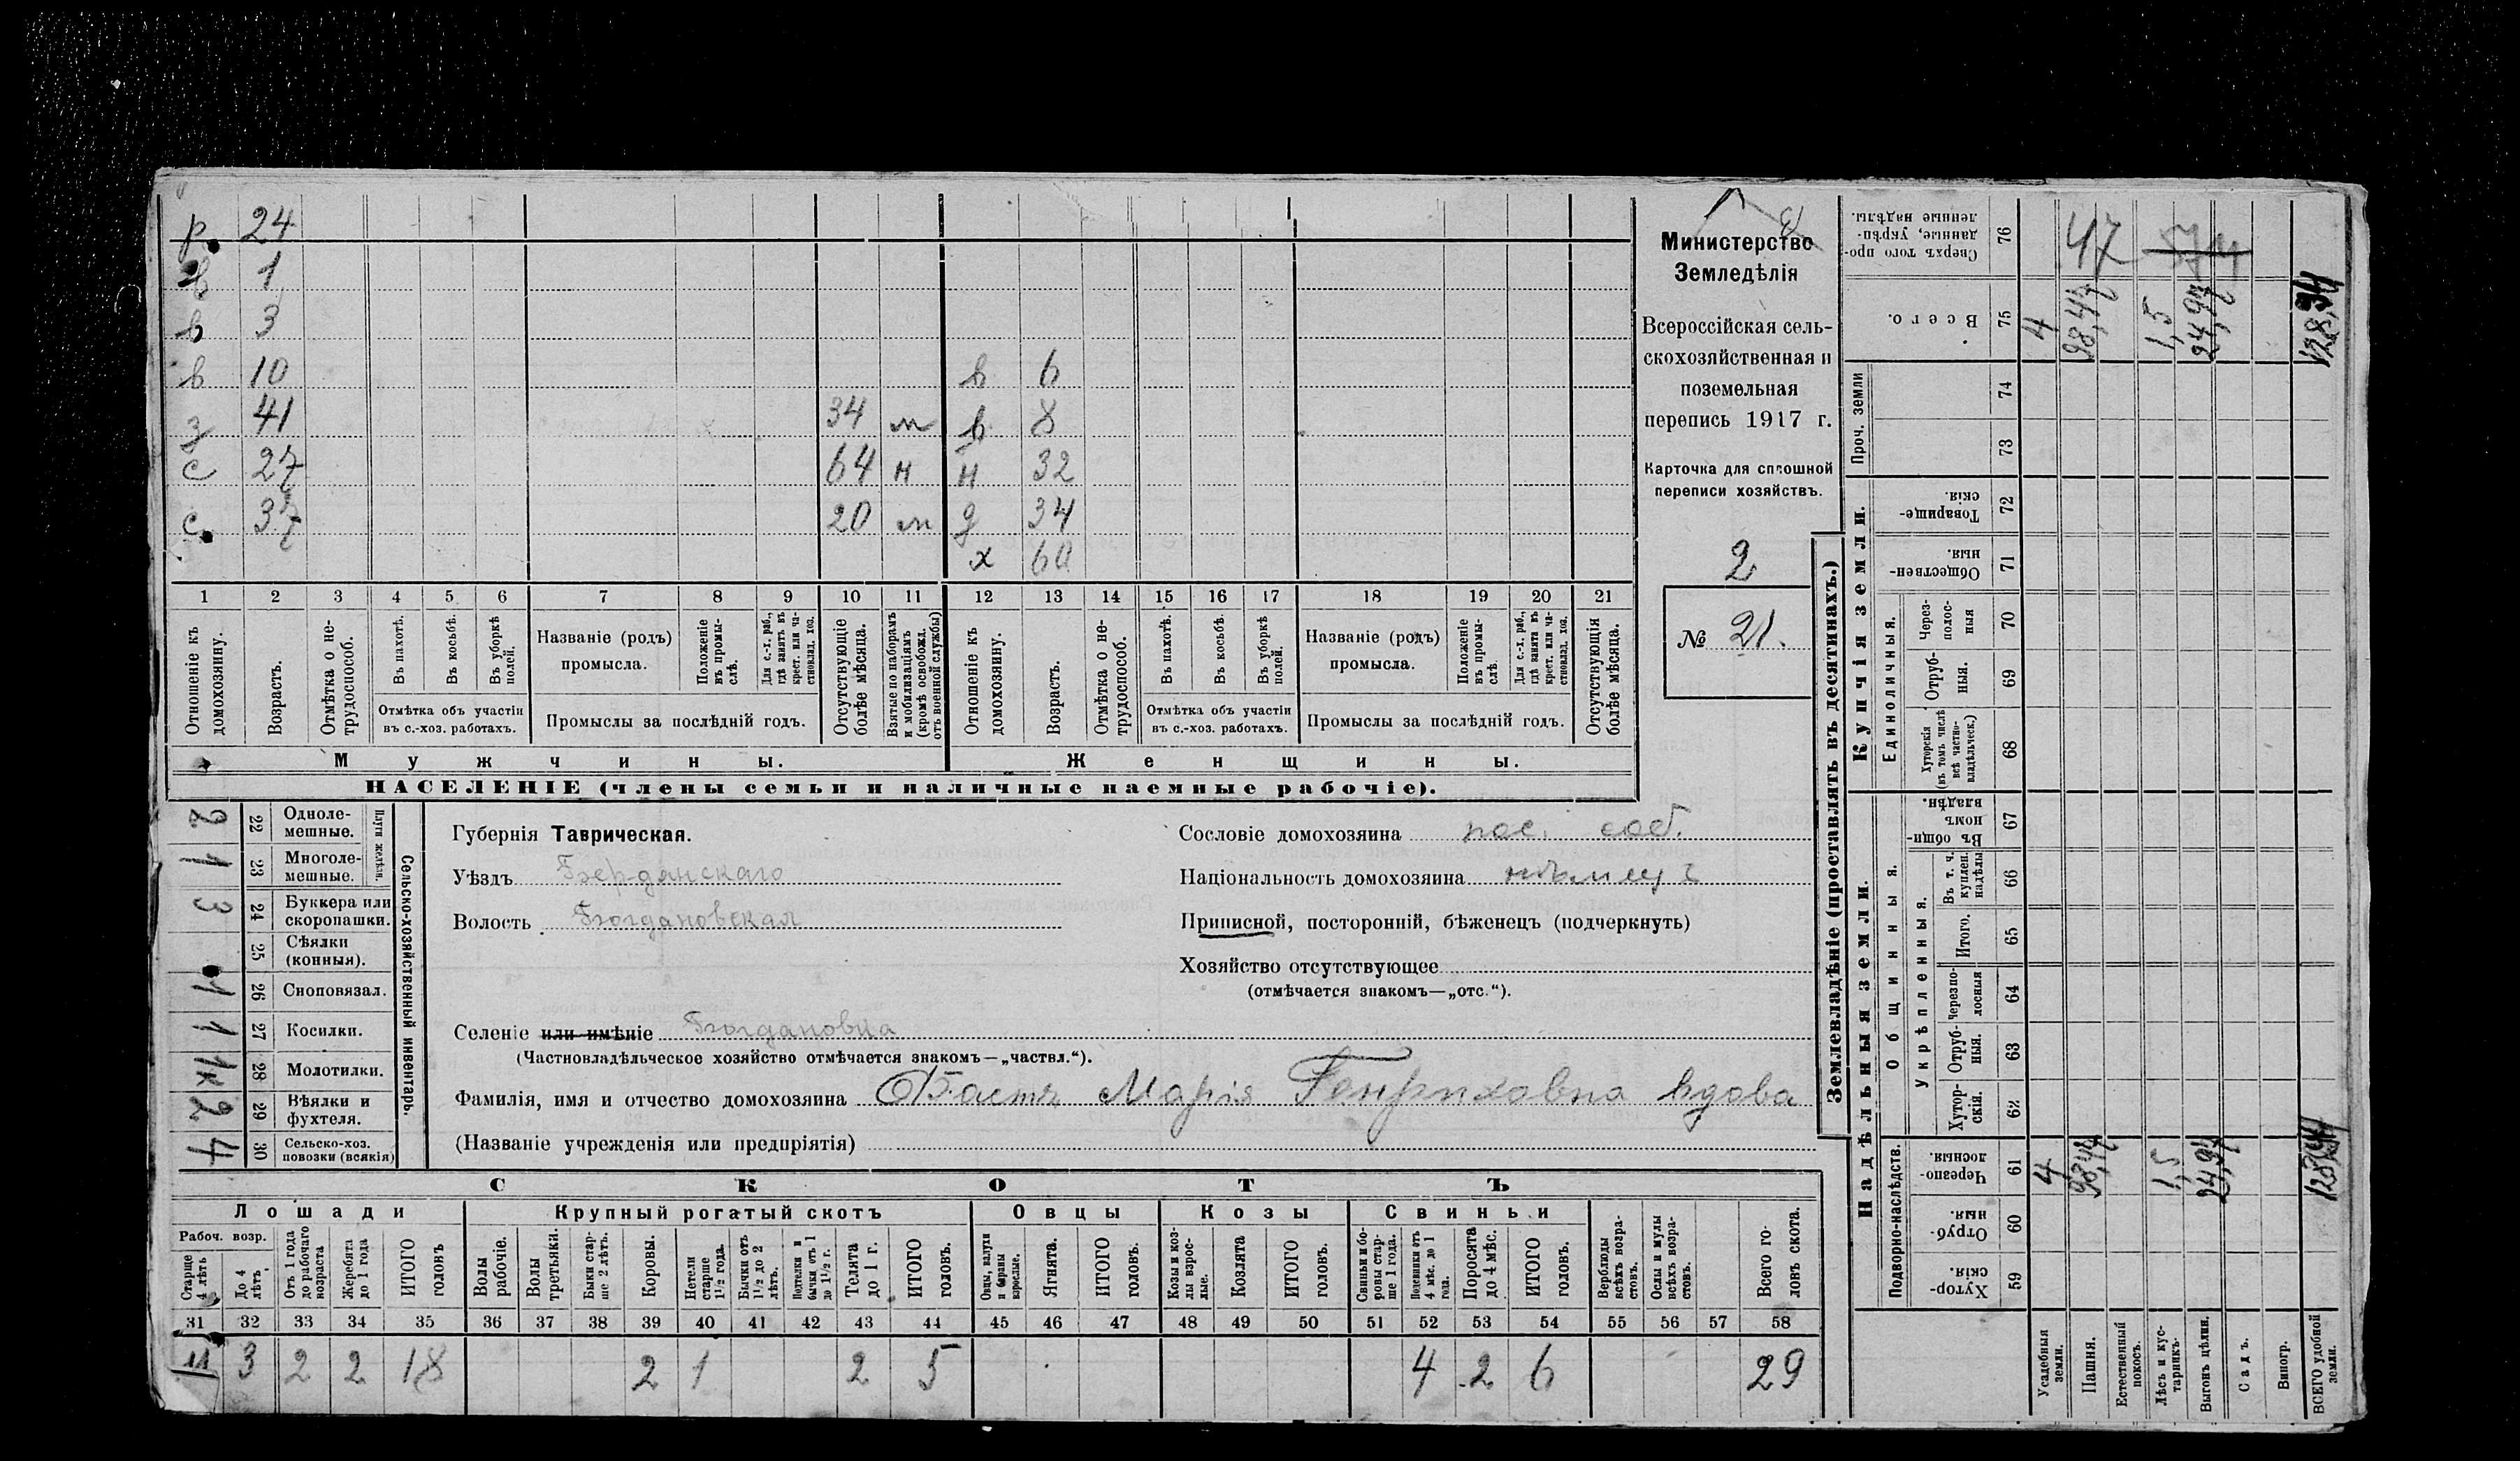 р. 24
в 1
в 3
в 10 в 6
з 41 34 м в 8
с 27 64 н н 32
с. 37 20 м д 34
х 60
1 2 3 4 5 6 7 8 9 10 11 12 13 14 15 16 17 18 19 20 21
Отношеніе къ домохозяину.
Возрастъ.
Отмѣтка о не-трудоспособ.
Въ пахотѣ.
Въ косьбѣ.
Въ уборкѣ полей.
Отмѣтка объ участіи
въ с.-хоз. работахъ.
Названіе (родъ)
промысла.
Положеніе въ промы-слѣ.
Для с.-х. раб., гдѣ занятъ въ крест. или ча-стновлад. хоз.
Промыслы за послѣдній годъ.
Отсутствующіе болѣе мѣсяца.
Взятые по наборамъ и мобилизаціямъ (кромѣ освобожд. отъ военной службы)
Отношеніе къ домохозяину.
Возрастъ.
Отмѣтка о не-трудоспособ.
Въ пахотѣ.
Въ косьбѣ.
Въ уборкѣ полей.
Отмѣтка объ участіи
въ с.-хоз. работахъ.
Названіе (родъ)
промысла.
Положеніе въ промы-слѣ.
Для с.-х. раб., гдѣ занята въ крест. или ча-стновлад. хоз.
Промыслы за послѣдній годъ.
Отсутствующія болѣе мѣсяца.
Мужчины. Женщины.
НАСЕЛЕНІЕ (члены семьи и наличные наемные рабочіе).
Министерство
Земледѣлія
Всероссійская сель-
скохозяйственная и
поземельная
перепись 1917 г.
Карточка для сплошной
переписи хозяйствъ.
2
№ 21.
Сельско-хозяйственный инвентарь.
Плуги желѣзн.
2 22 Одноле-мешные.
1 23 Многоле-мешные.
3 24 Буккера или скоропашки.
25 Сѣялки (конныя).
1 26 Сноповязал.
1 27 Косилки.
1к 28 Молотилки.
2 29 Вѣялки и фухтеля.
4 30 Сельско-хоз. повозки (всякія)
Губернія Таврическая.
Уѣздъ Бердянскаго
Волость Богдановская
Селеніе или имѣніе Богдановка
(Частновладѣльческое хозяйство отмѣчается знакомъ—„частвл.“).
Фамилія, имя и отчество домохозяина Марія Генриховна вдова
(Названіе учрежденія или предпріятія)
Сословіе домохозяина пос. соб.
Національность домохозяина нѣмецъ
Приписной, посторонній, бѣженецъ (подчеркнуть)
Хозяйство отсутствующее
(отмѣчается знакомъ—„отс.“).
СКОТЪ
Лошади Крупный рогатый скотъ Овцы Козы Свиньи
Рабоч. возр.
Старше 4 лѣтъ
До 4 лѣтъ
Отъ 1 года до рабочаго возраста
Жеребята до 1 года
ИТОГО головъ
Волы рабочіе.
Волы третьяки.
Быки стар-ше 2 лѣтъ.
Коровы.
Нетели старше 1½ года.
Бычки отъ 1½ до 2 лѣтъ.
Подтелки и бычки отъ 1 до 1½ г.
Телята до 1 г.
ИТОГО головъ.
Овцы, валухи и бараны взрослые.
Ягнята.
ИТОГО головъ.
Козы и коз-лы взрос-лые.
Козлята
ИТОГО головъ.
Свиньи и бо-ровы стар-ше 1 года.
Подсвинки отъ 4 мѣс. до 1 года.
Поросята до 4 мѣс.
ИТОГО головъ.
Верблюды всѣхъ возра-стовъ.
Ослы и мулы всѣхъ возра-стовъ.
Всего го-ловъ скота.
31 32 33 34 35 36 37 38 39 40 41 42 43 44 45 46 47 48 49 50 51 52 53 54 55 56 57 58
11 3 2 2 18 2 1 2 5 4 2 6 29
Землевладѣніе (проставлять въ десятинахъ.)
Купчія земли.
Надѣльныя земли.
Сверхъ того про-данные, укрѣп-ленные надѣлы. 76 47
Всего. 75 4 98,47 1,5 24,97 128,94
Проч. земли 74
73
Товарище-скія. 72
Обществен-ныя. 71
Единоличныя.
Через-полос-ныя 70
Отруб-ныя. 69
Хуторскія (въ томъ числѣ всѣ частно-владѣльческ.) 68
Общинныя.
Въ общи-номъ владѣн. 67
Укрѣпленныя.
Въ т. ч. куплен. надѣлы 66
Итого. 65
Черезпо-лосныя 64
Отруб-ныя. 63
Хутор-скія. 62
Подворно-наслѣдств.
Черезпо-лосныя. 61 4 98,47 1,5 24,97 128,94
Отруб-ныя. 60
Хутор-скія. 59
Усадебныя земли.
Пашня.
Естественный покосъ.
Лѣсъ и кус-тарникъ.
Выгонъ цѣлин.
Садъ.
Виногр.
ВСЕГО удобной земли.